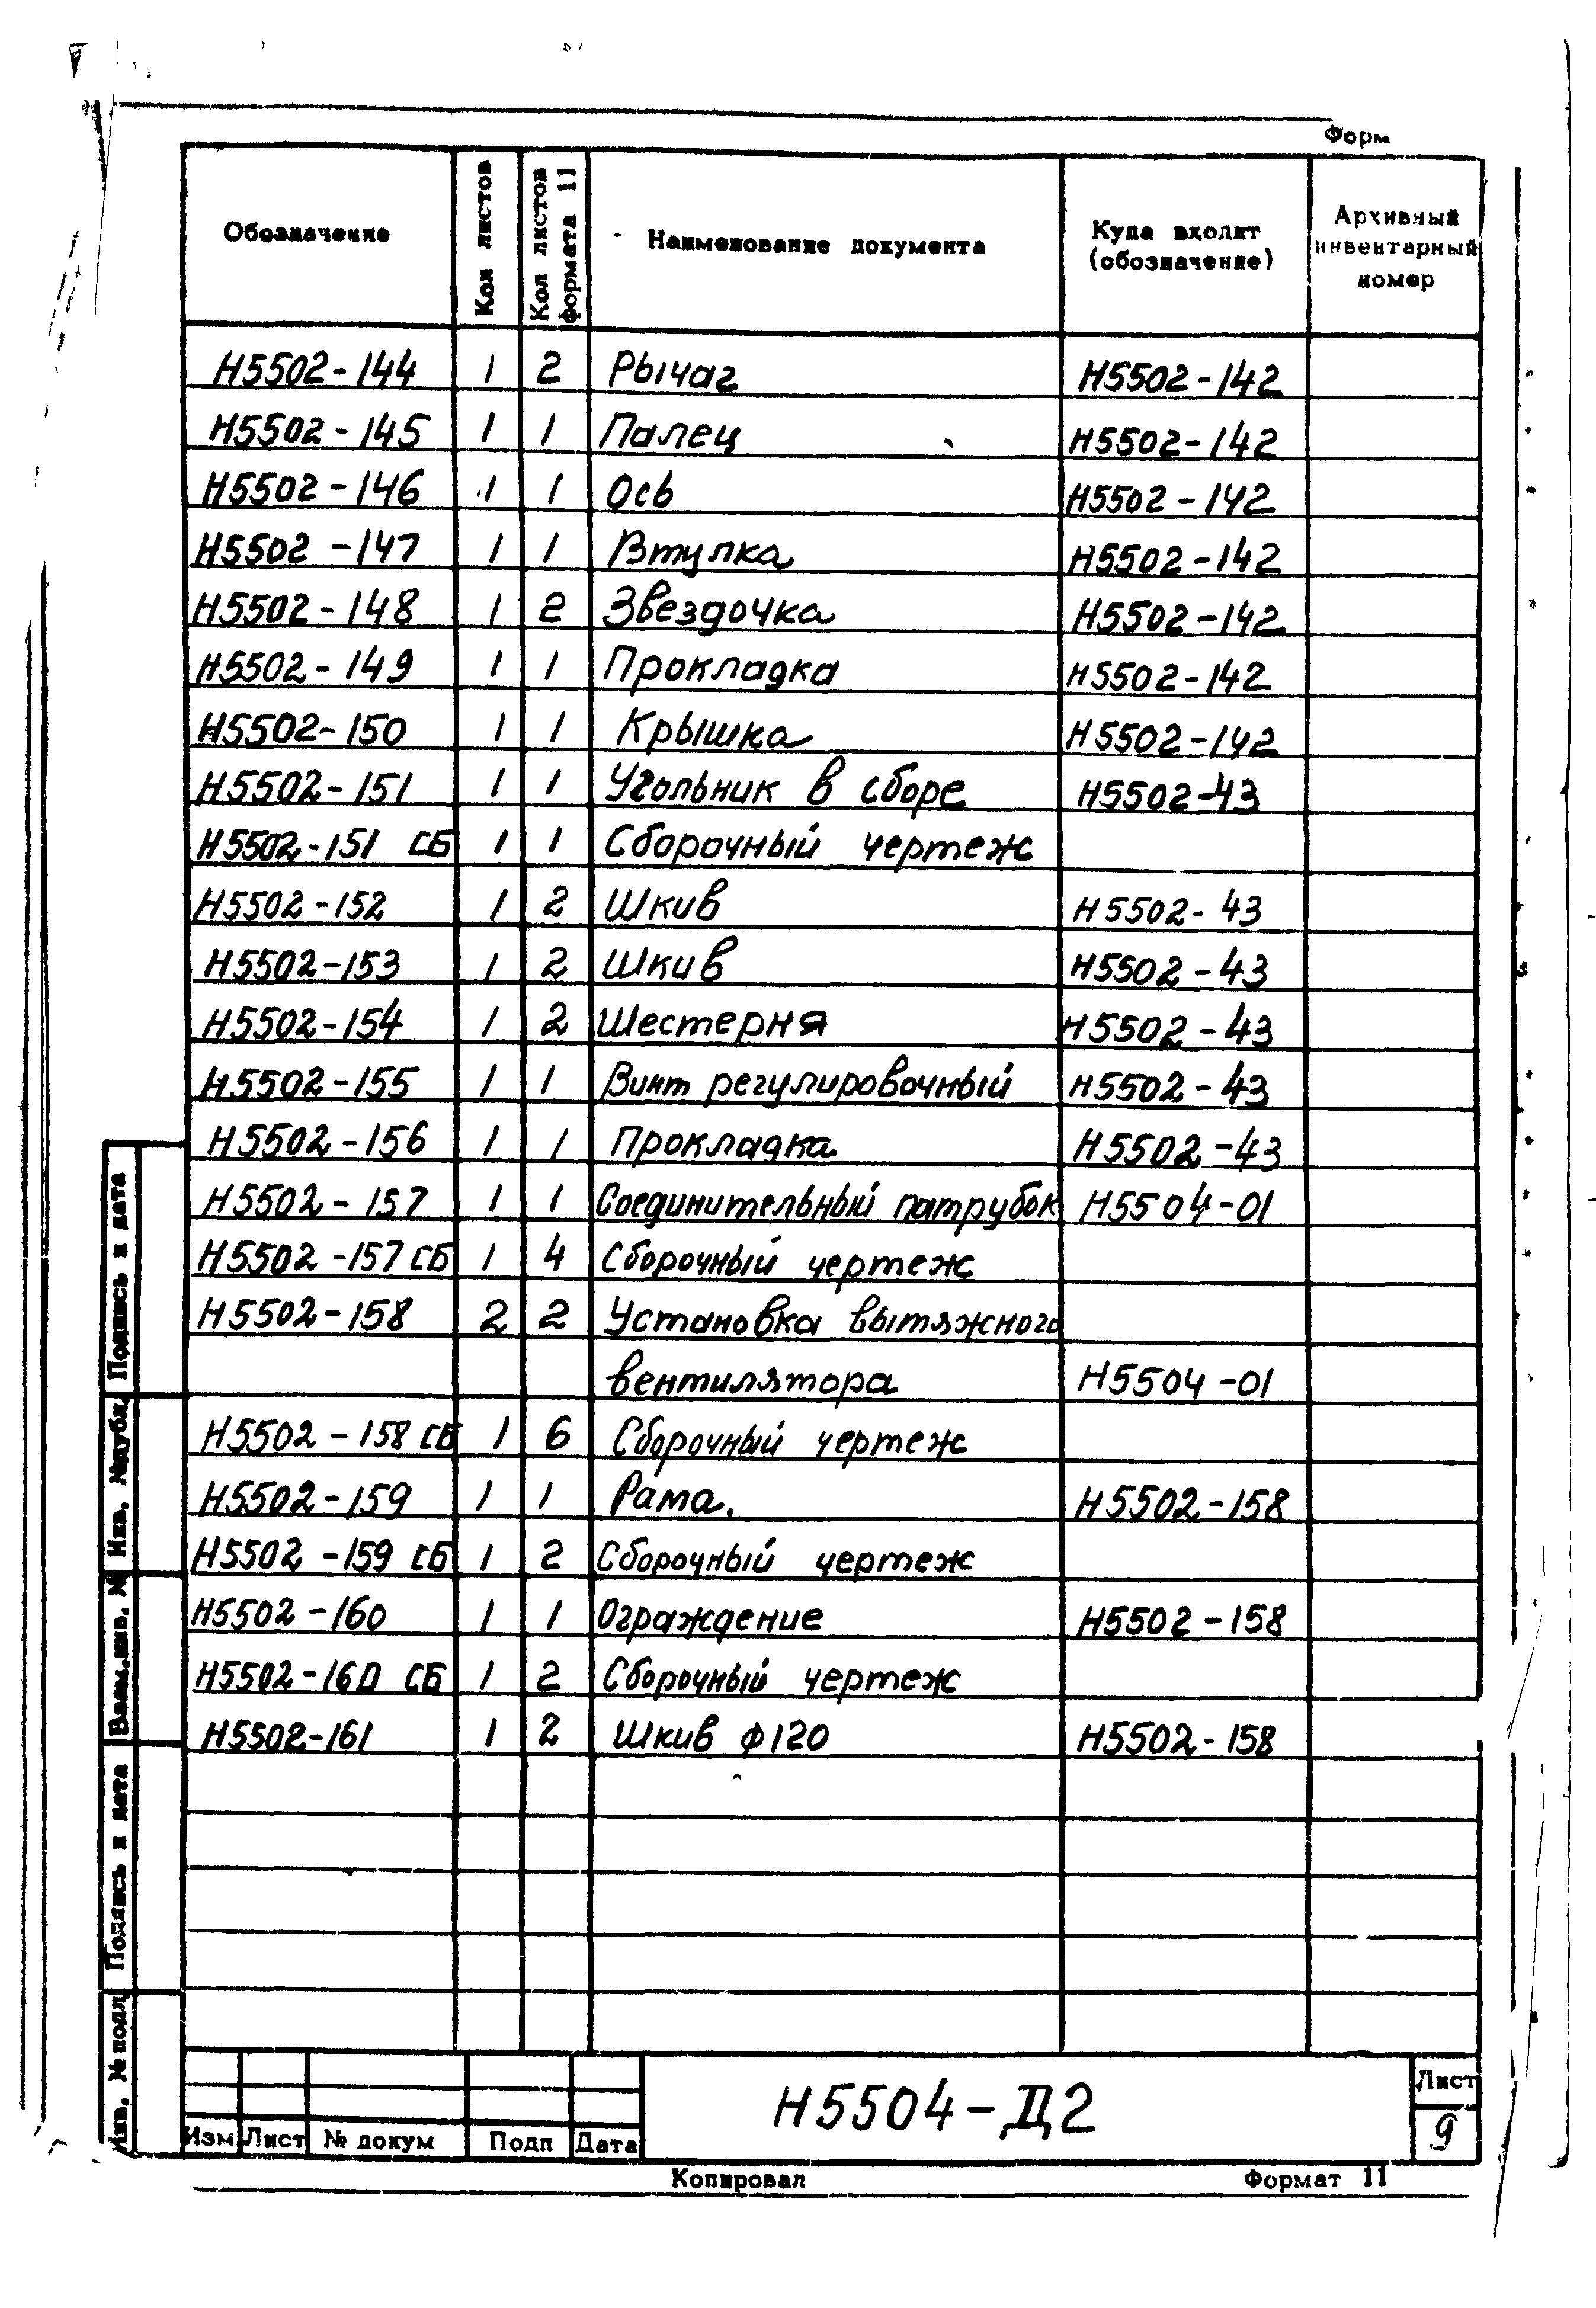 Форм
Обозначение | Кол листов | Кол листов формата 11 | Наименование документа | Куда входит (обозначение) | Архивный инвентарный номер
Н5502-144 | 1 | 2 | Рычаг | Н5502-142
Н5502-145 | 1 | 1 | Палец | Н5502-142
Н5502-146 | 1 | 1 | Ось | Н5502-142
Н5502-147 | 1 | 1 | Втулка | Н5502-142
Н5502-148 | 1 | 2 | Звездочка | Н5502-142
Н5502-149 | 1 | 1 | Прокладка | Н5502-142
Н5502-150 | 1 | 1 | Крышка | Н5502-142
Н5502-151 | 1 | 1 | Угольник в сборе | Н5502-43
Н5502-151 СБ | 1 | 1 | Сборочный чертеж
Н5502-152 | 1 | 2 | Шкив | Н5502-43
Н5502-153 | 1 | 2 | Шкив | Н5502-43
Н5502-154 | 1 | 2 | Шестерня | Н5502-43
Н5502-155 | 1 | 1 | Винт регулировочный | Н5502-43
Н5502-156 | 1 | 1 | Прокладка | Н5502-43
Н5502-157 | 1 | 1 | Соединительный патрубок | Н5504-01
Н5502-157 СБ | 1 | 4 | Сборочный чертеж
Н5502-158 | 2 | 2 | Установка вытяжного
вентилятора | Н5504-01
Н5502-158 СБ | 1 | 6 | Сборочный чертеж
Н5502-159 | 1 | 1 | Рама. | Н5502-158
Н5502-159 СБ | 1 | 2 | Сборочный чертеж
Н5502-160 | 1 | 1 | Ограждение | Н5502-158
Н5502-160 СБ | 1 | 2 | Сборочный чертеж
Н5502-161 | 1 | 2 | Шкив ф120 | Н5502-158
Подпись и дата
Инв. № дубл.
Взам. инв. №
Подпись и дата
Инв. № подл
Изм | Лист | № докум | Подп | Дата
Н5504-Д2
Лист
9
Копировал
Формат 11